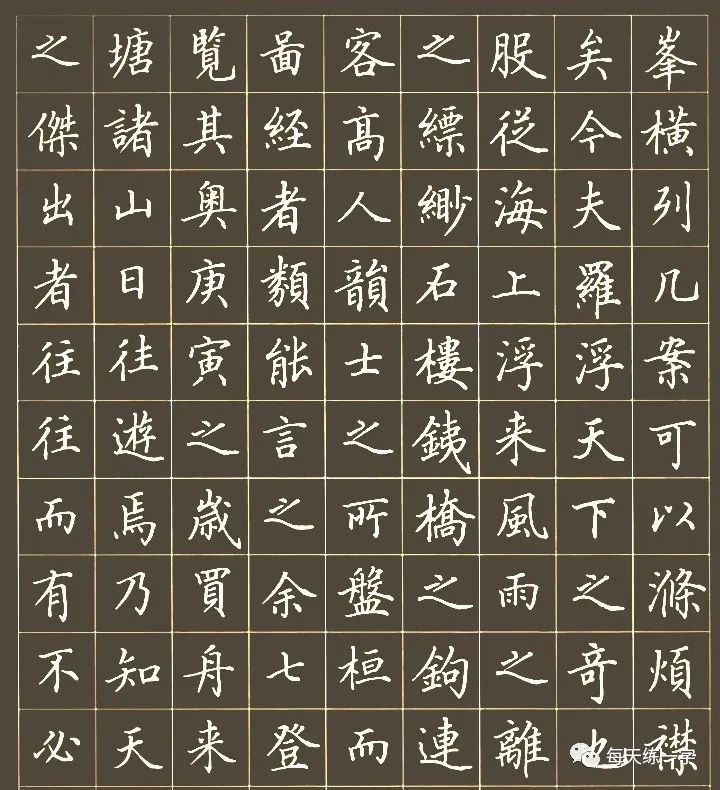 峯橫列几案可以滌煩襟
矣今夫羅浮天下之奇也
股従海上浮来風雨之離
之縹緲石樓銕橋之鉤連
客髙人韻士之所盤桓而
啚経者類能言之余七登
覽其奥庚寅之歳買舟来
塘諸山日往遊焉乃知天
之傑出者往往而有不必
每天练一字